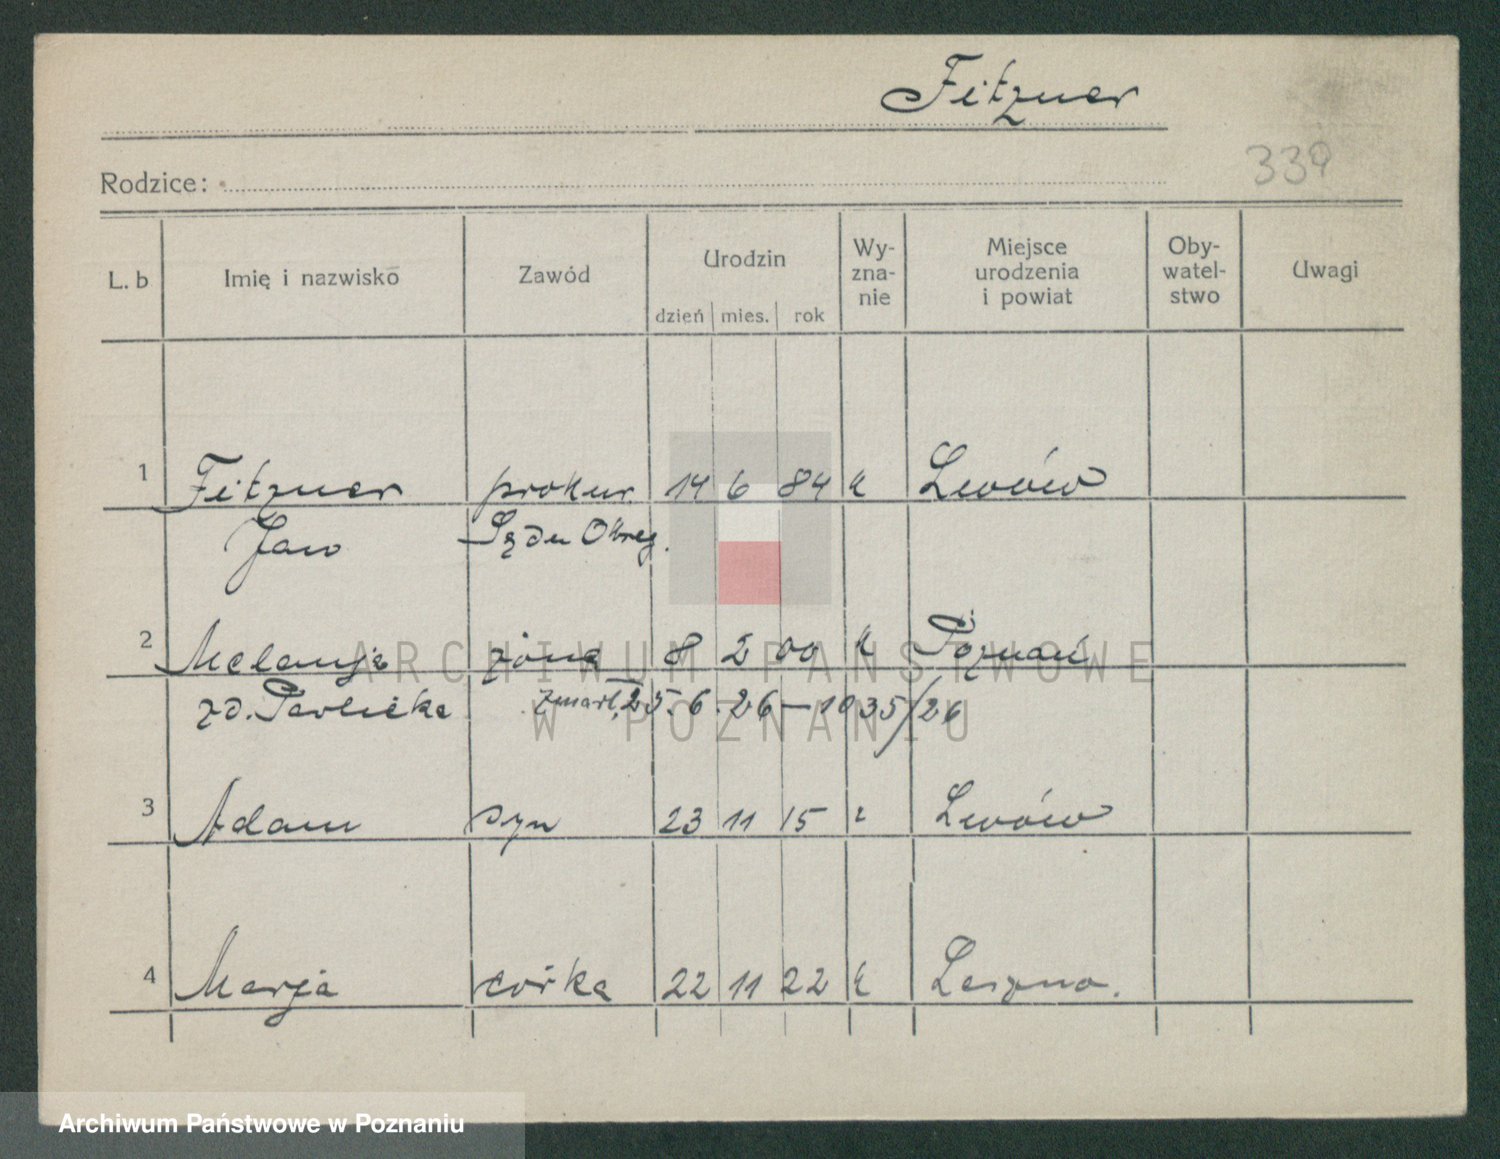 Fitzner
339
Rodzice:
L. b Imię i nazwisko Zawód Urodzin Wy-zna-nie Miejsce urodzenia i powiat Oby-watel-stwo Uwagi
dzień mies. rok
1 Fitzner prokur. 14 6 84 k Lwów
Jan Sądu Okreg.
2 Melanja żona 8 2 00 k Poznań
zd. Pavlicka zmarł. 25.6.26 – 1035/26
3 Adam syn 23 11 15 Lwów
4 Marja córka 22 11 22 k Leszno.
ARCHIWUM PAŃSTWOWE
W POZNANIU
Archiwum Państwowe w Poznaniu